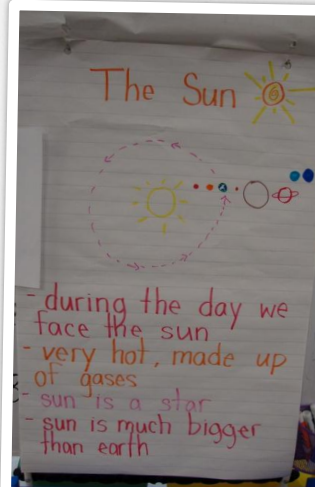 The Sun
- during the day we
face the sun
- very hot, made up
of gases
- sun is a star
- sun is much bigger
than earth